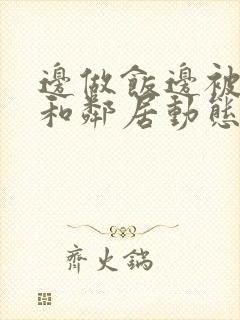 邊做飯邊被
和鄰居動態
齊火鍋